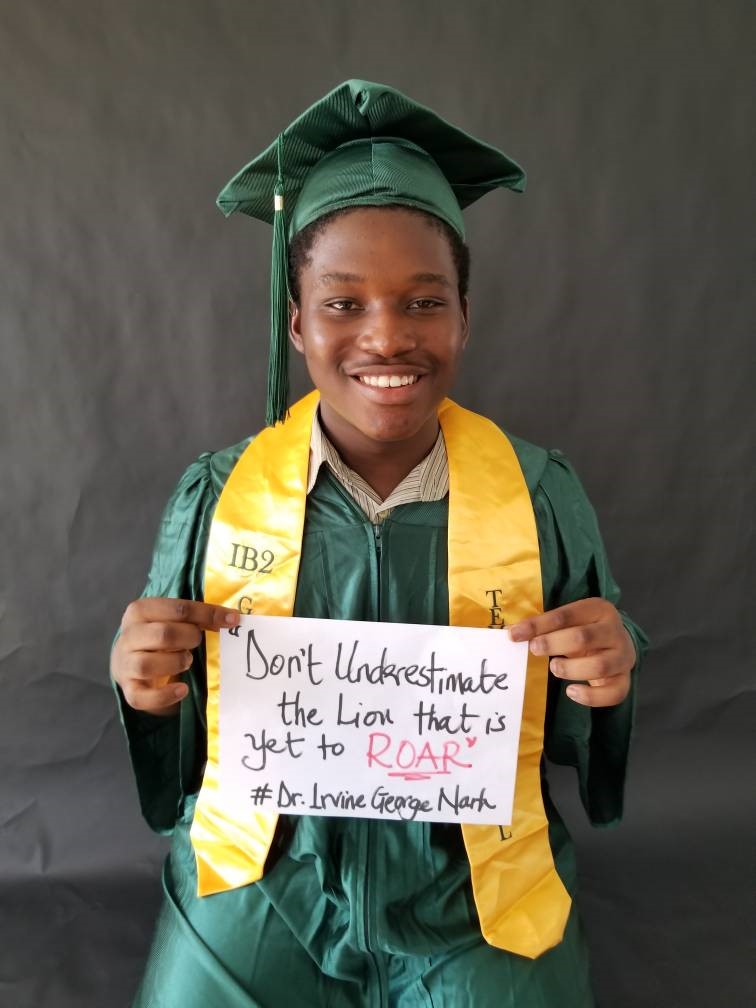 IB2
G
TE
"Don't Underestimate
the Lion that is
yet to ROAR"
#Dr. Irvine George Narh
L